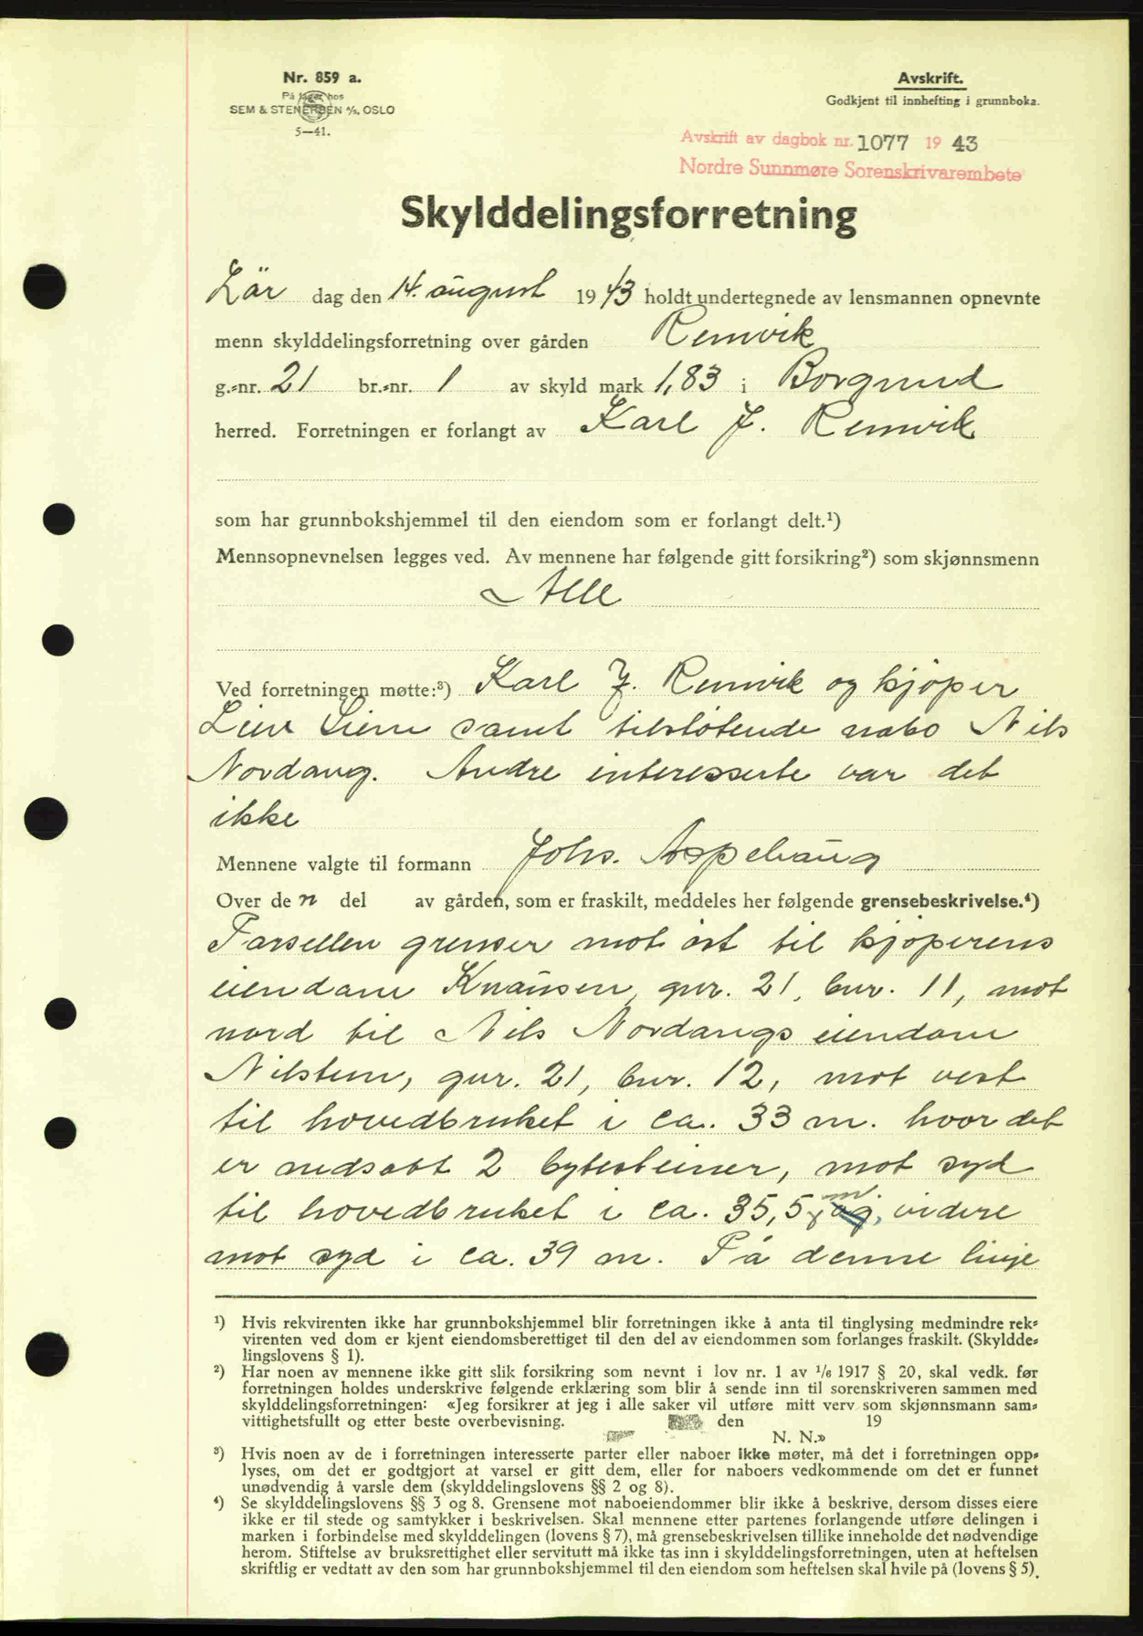 Nr. 859 a.
På lager hos
SEM & STENERSEN A/S, OSLO
5—41.
Avskrift.
Godkjent til innhefting i grunnboka.
Avskrift av dagbok nr. 1077 19 43
Nordre Sunnmøre Sorenskrivarembete
Skylddelingsforretning
Lör dag den 14. august 1943 holdt undertegnede av lensmannen opnevnte
menn skylddelingsforretning over gården Remvik
g.-nr. 21 br.-nr. 1 av skyld mark 1,83 i Borgund
herred. Forretningen er forlangt av Karl J. Remvik
som har grunnbokshjemmel til den eiendom som er forlangt delt.¹)
Mennsopnevnelsen legges ved. Av mennene har følgende gitt forsikring²) som skjønnsmenn
Alle
Ved forretningen møtte:³) Karl J. Remvik og kjöper
Liem samt tilstötende nabo Nils
Nordang. Andre interesserte var det
ikke
Mennene valgte til formann Johs. Aspehaug
Over de n del av gården, som er fraskilt, meddeles her følgende grensebeskrivelse.⁴)
Parsellen grenser mot öst til kjöperens
eiendom Knausen, gnr. 21, bnr. 11, mot
nord til Nils Nordangs eiendom
Nilstun, gnr. 21, bnr. 12, mot vest
til hovedbruket i ca. 33 m. hvor det
er nedsatt 2 bytesteiner, mot syd
til hovedbruket i ca. 35,5 m. og, videre
mot syd i ca. 39 m. På denne linje
¹) Hvis rekvirenten ikke har grunnbokshjemmel blir forretningen ikke å anta til tinglysing medmindre rek-
virenten ved dom er kjent eiendomsberettiget til den del av eiendommen som forlanges fraskilt. (Skyldde-
lingslovens § 1).
²) Har noen av mennene ikke gitt slik forsikring som nevnt i lov nr. 1 av 1/6 1917 § 20, skal vedk. før
forretningen holdes underskrive følgende erklæring som blir å sende inn til sorenskriveren sammen med
skylddelingsforretningen: «Jeg forsikrer at jeg i alle saker vil utføre mitt verv som skjønnsmann sam-
vittighetsfullt og etter beste overbevisning. den 19
N. N.»
³) Hvis noen av de i forretningen interesserte parter eller naboer ikke møter, må det i forretningen opp-
lyses, om det er godtgjort at varsel er gitt dem, eller for naboers vedkommende om det er funnet
unødvendig å varsle dem (skylddelingslovens §§ 2 og 8).
⁴) Se skylddelingslovens §§ 3 og 8. Grensene mot naboeiendommer blir ikke å beskrive, dersom disses eiere
ikke er til stede og samtykker i beskrivelsen. Skal mennene etter partenes forlangende utføre delingen i
marken i forbindelse med skylddelingen (lovens § 7), må grensebeskrivelsen tillike inneholde det nødvendige
herom. Stiftelse av bruksrettighet eller servitutt må ikke tas inn i skylddelingsforretningen, uten at heftelsen
skriftlig er vedtatt av den som har grunnbokshjemmel til den eiendom som heftelsen skal hvile på (lovens § 5).